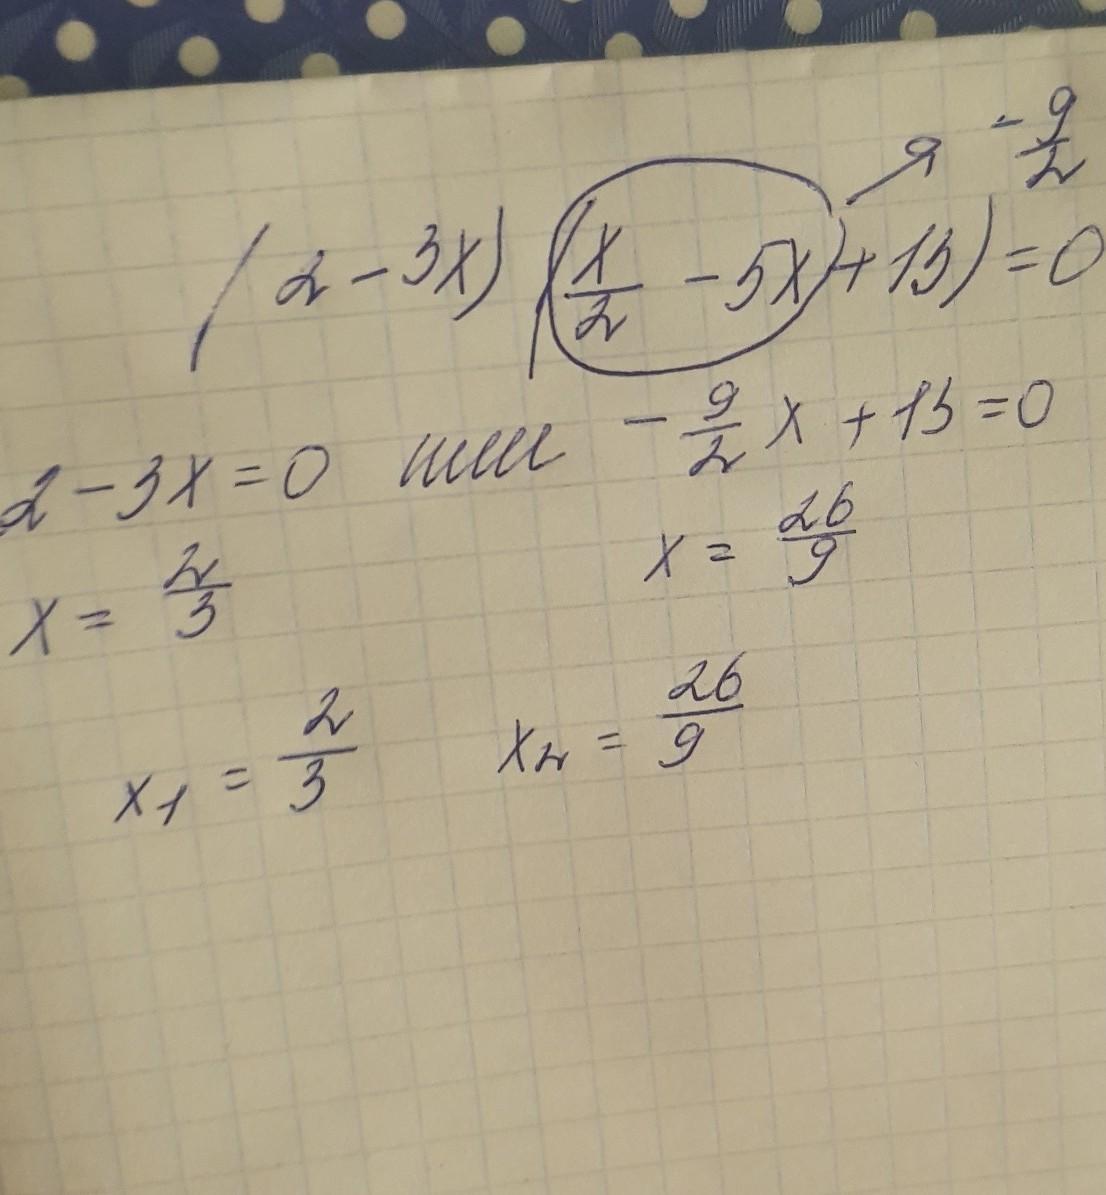 - 9/2
(2 - 3x) (x/2 - 5x) + 13) = 0
2 - 3x = 0 или - 9/2 x + 13 = 0
x = 2/3 x = 26/9
x1 = 2/3 x2 = 26/9